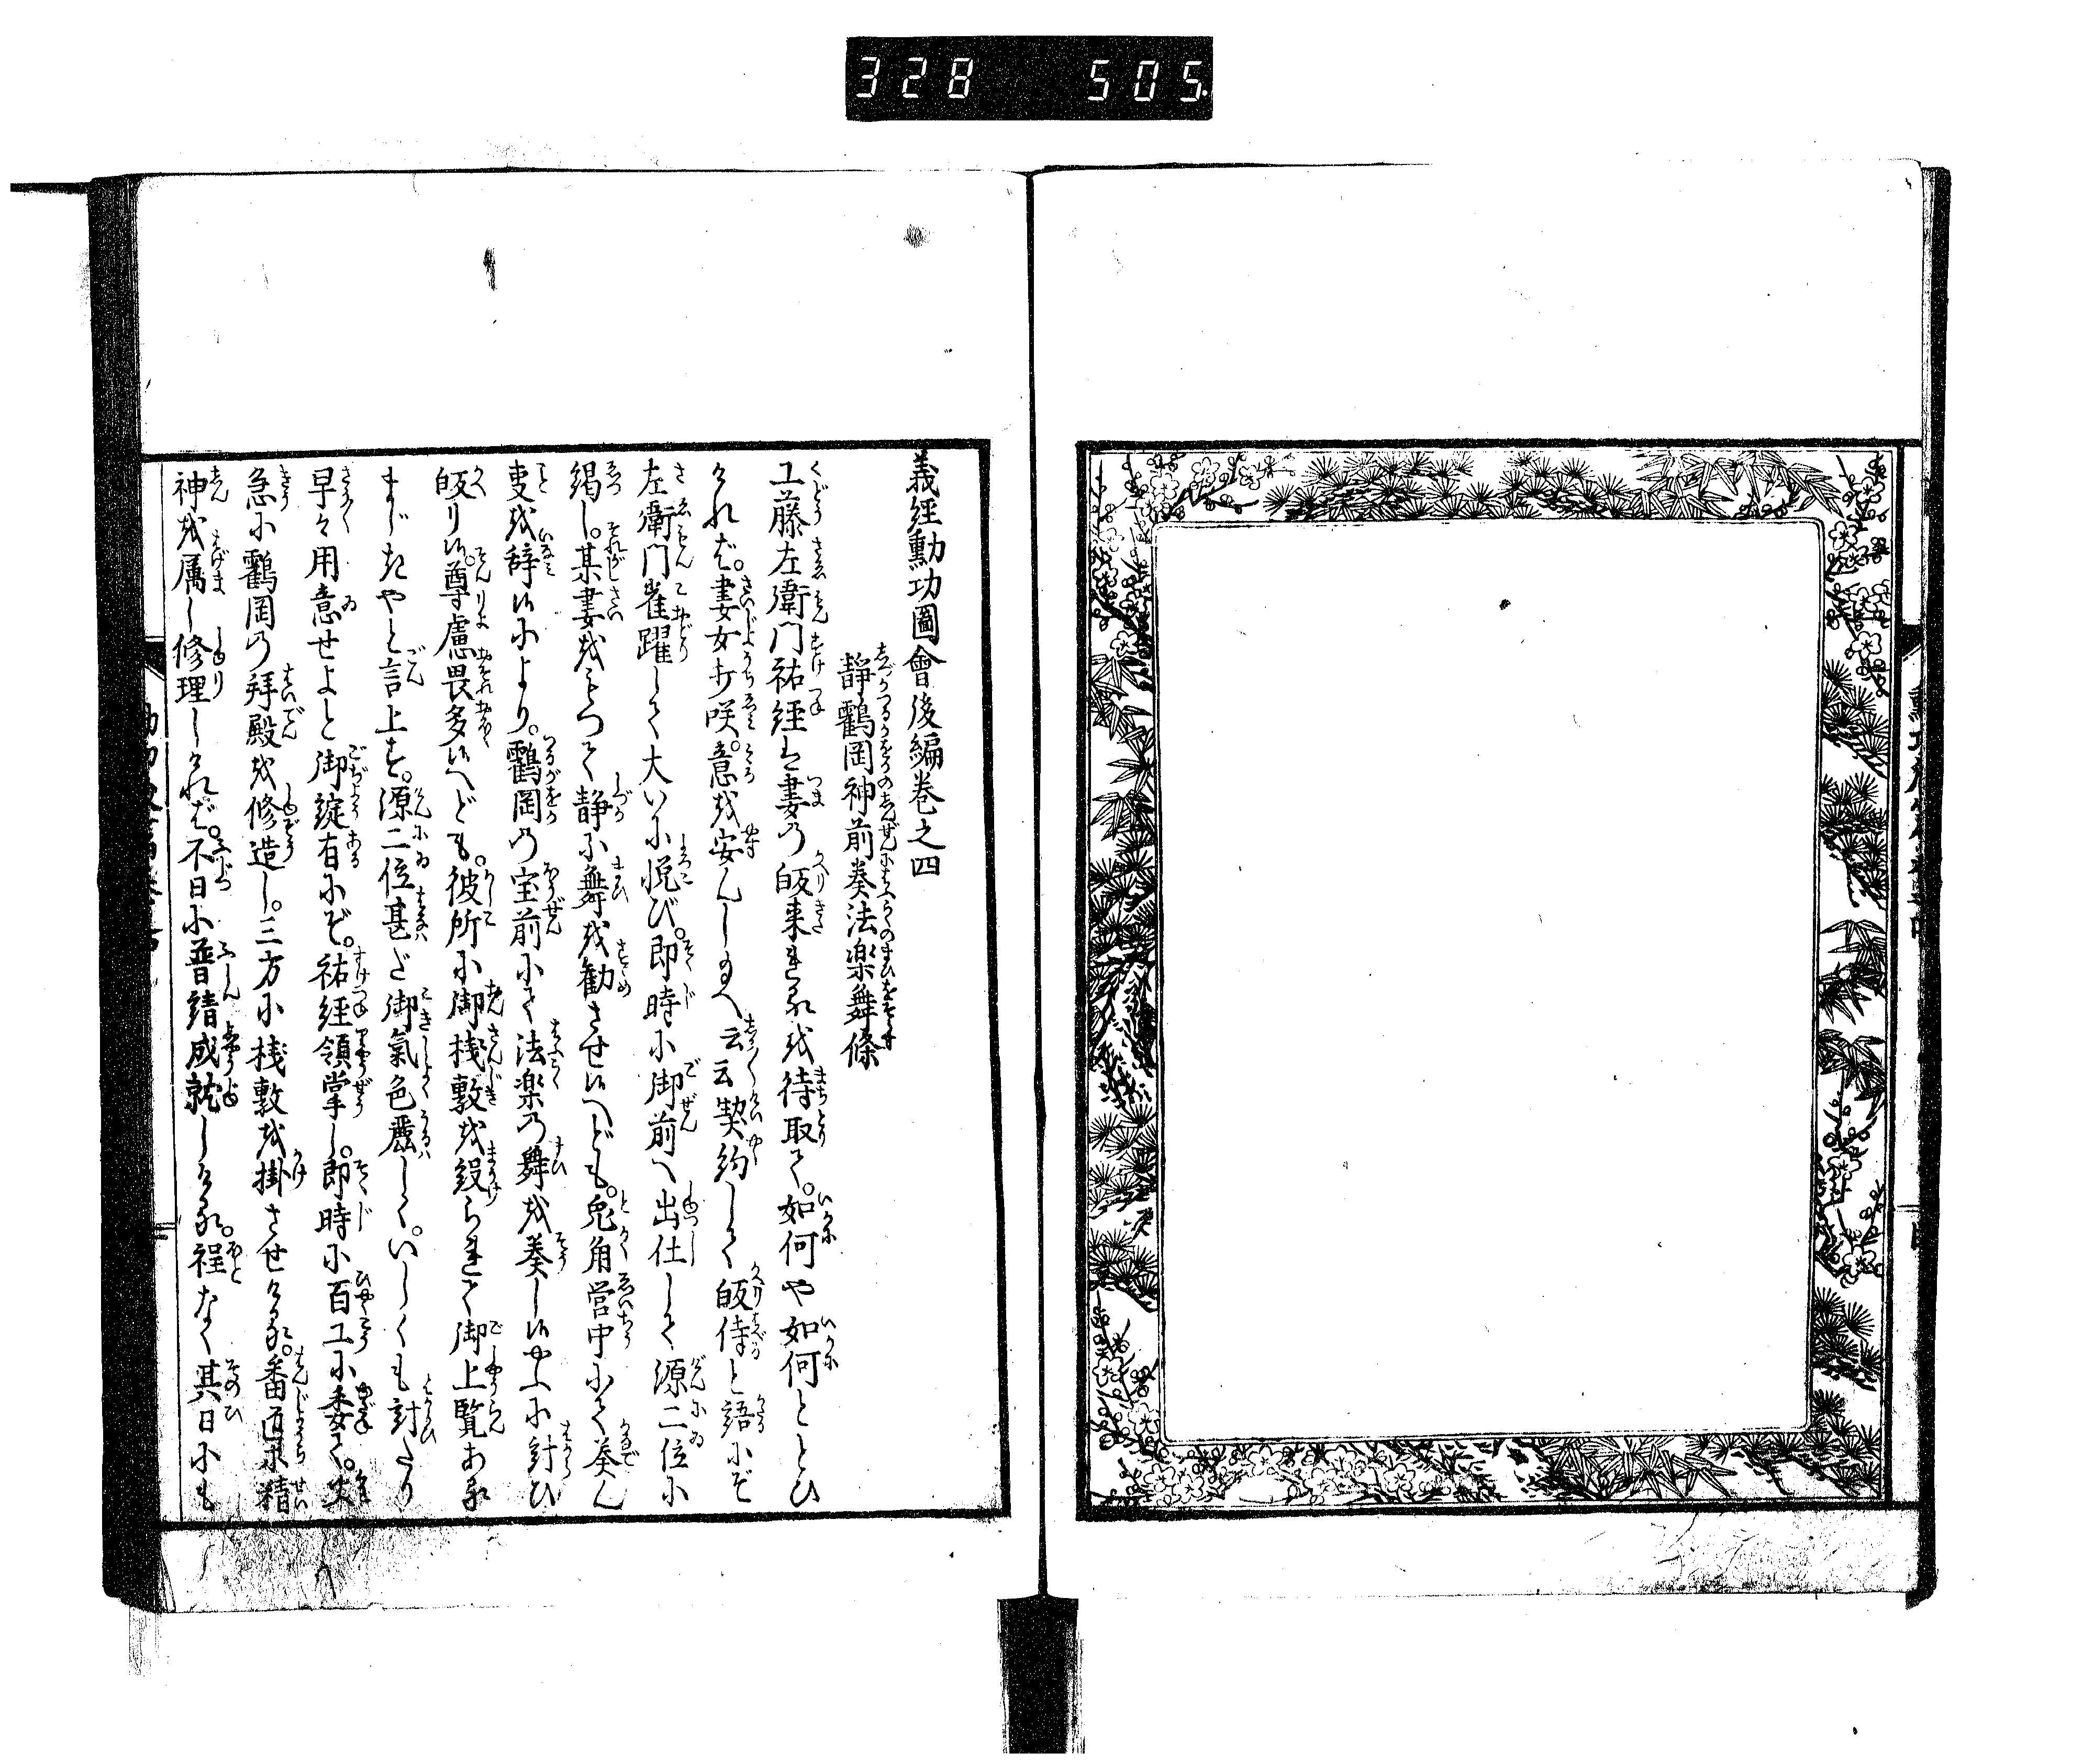 328 505
義經勳功圖會後編巻之四
靜鶴岡神前奏法楽舞條
工藤左衛門祐経は妻の皈来るを待取て。如何や如何ととひ
ければ。妻女打咲。意を安んじ玉へ云云契約して皈侍と語にぞ
左衛門雀躍して大いに悦び。即時に御前へ出仕して源二位に
謁し。某妻をもつて静に舞を勧させ候へども。兎角営中にて奏ん
事を辞候により。鶴岡の宝前にて法楽の舞を奏し候やふに計ひ
皈り候。尊慮畏多候へども。彼所に御桟敷を設られて御上覧ある
まじきやと言上す。源二位甚だ御氣色麗しく。いしくも計たり
早々用意せよと御諚有にぞ。祐経領掌し。即時に百工に委て。
急に鶴岡の拜殿を修造し。三方に桟敷を掛させける。番匠精
神を属し修理しければ。不日に普請成就しける。程なく其日にも